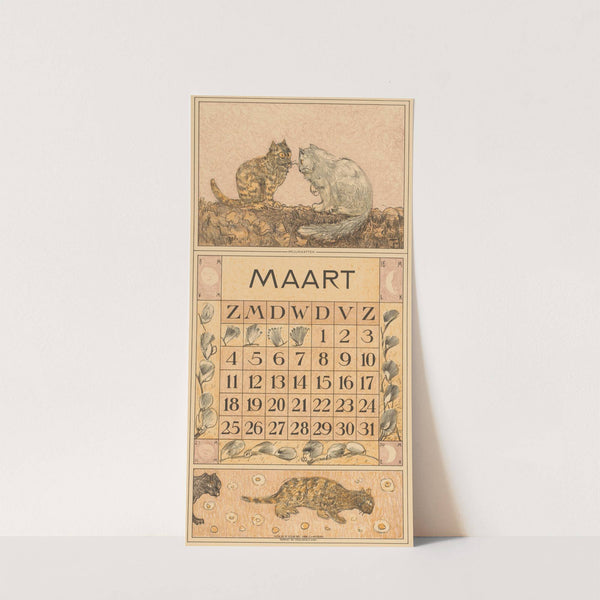 MAART
Z M D W D V Z
1 2 3
4 5 6 7 8 9 10
11 12 13 14 15 16 17
18 19 20 21 22 23 24
25 26 27 28 29 30 31